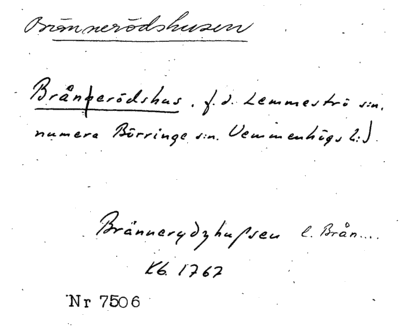 Brännerödshusen
Brännerödshus, f.d. Lemmeströ sn,
numera Börringe sn. Vemmenhögs h:d
Brännerydzhussen l. Brån....
Kb. 1767
Nr 7506